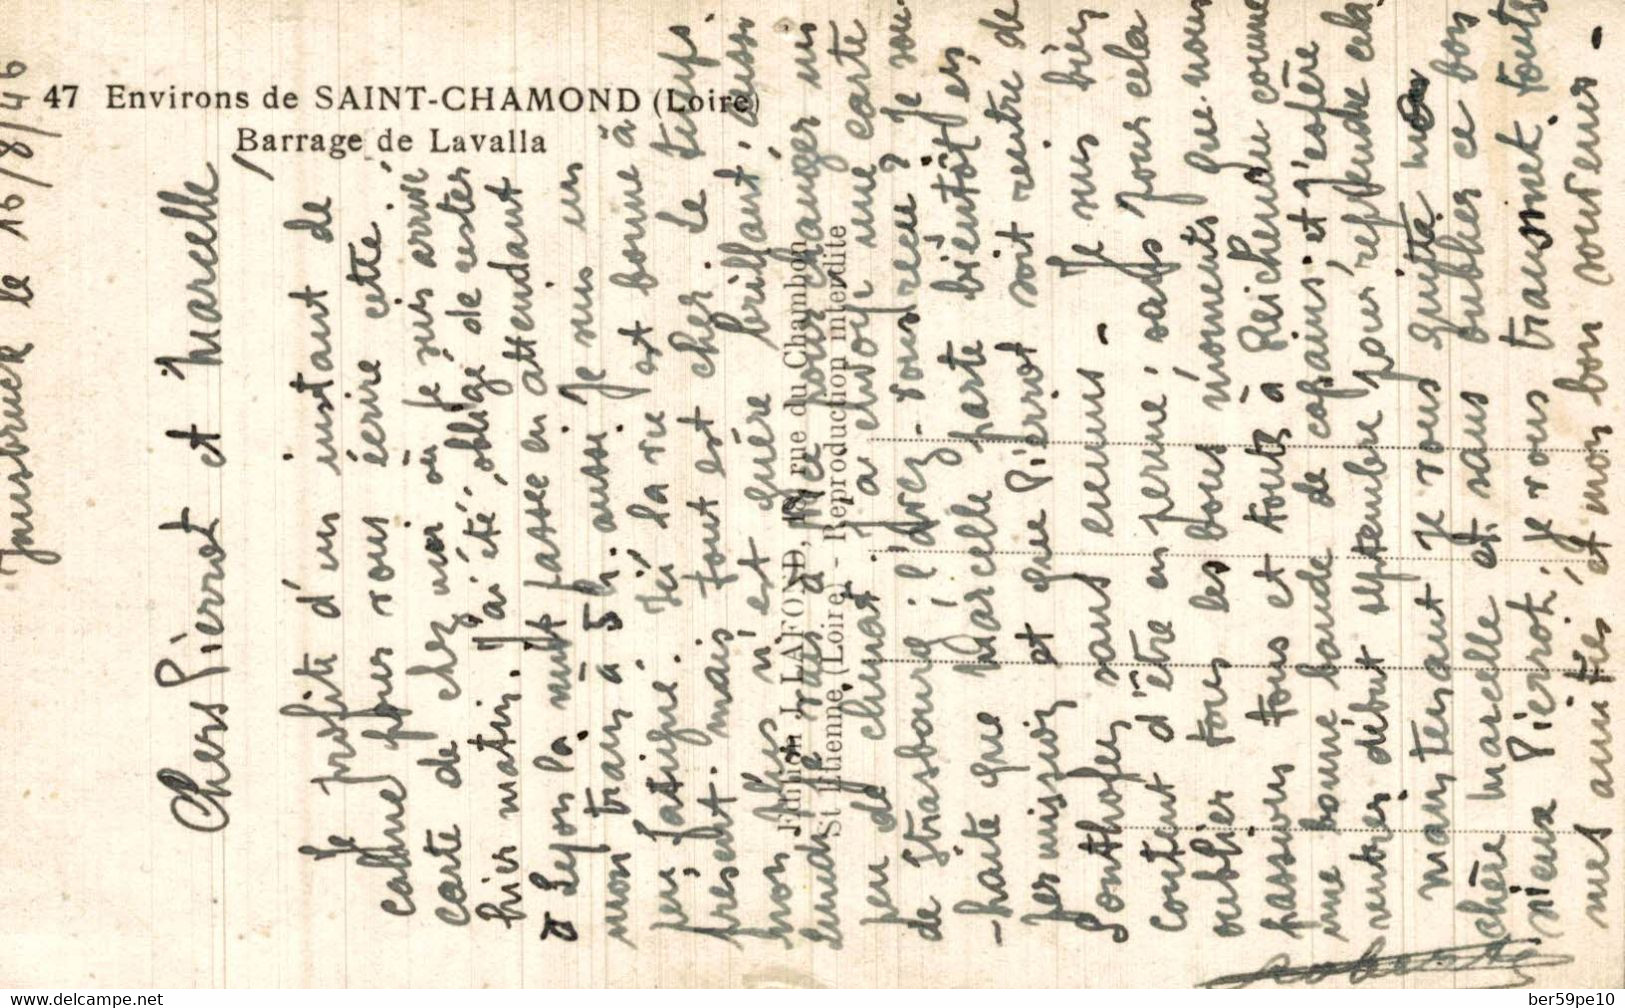 47 Environs de SAINT-CHAMOND (Loire)
Barrage de Lavalla
Innsbruck le 16/8/46
Chers Pierrot et Marcelle
Je profite d'un instant de
calme pour vous écrire cette
carte de chez moi où je suis arrivé
hier matin. J'ai été obligé de rester
à Lyon la nuit passée en attendant
mon train à 5h. aussi je suis un
peu fatigué. Ici la vie est bonne à
présent. mais tout est cher. Le temps
non plus n'est guère brillant, aussi
Lundi je vais à Nice pour changer un
peu de climat. J'ai envoyé une carte
de Strasbourg; l'avez-vous reçue? Je sou-
-haite que Marcelle parte bientôt en
permission et que Pierrot soit rentré de
Sonthofen sans ennuis - Je suis bien
content d'être en perme; sans pour cela
oublier tous les bons moments que nous
passions tous et toutes à Reichenau comme
une bonne bande de copains. et j'espère
rentrer début septembre pour reprendre cela.
maintenant je vous quitte
chère Marcelle et sans oublier ce bon
vieux Pierrot; je vous transmet toutes
mes amitiés et mon bon souvenir -
Fannon J. LAFOND, rue du Chambon
St Etienne (Loire) - Reproduction interdite
Delcampe.net
ber59pe10